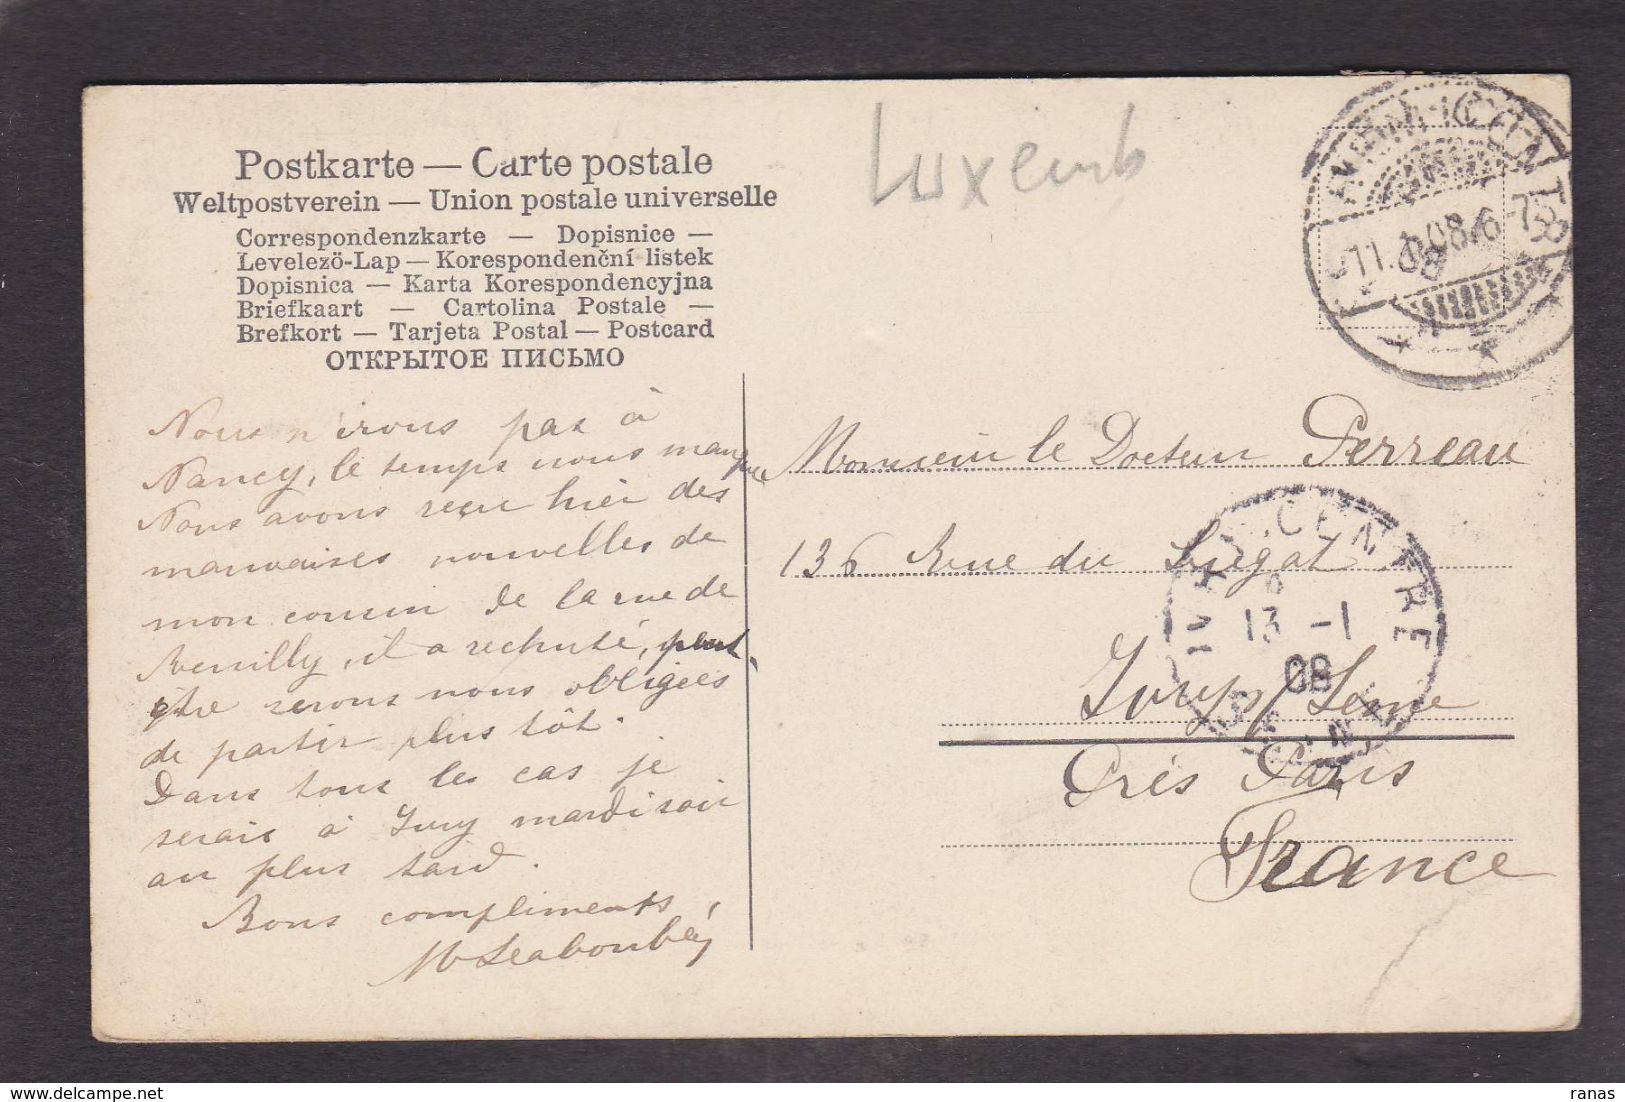 Postkarte — Carte postale
Weltpostverein — Union postale universelle
Correspondenzkarte — Dopisnice —
Levelezö-Lap — Korespondenční listek
Dopisnica — Karta Korespondencyjna
Briefkaart — Cartolina Postale —
Brefkort — Tarjeta Postal — Postcard
ОТКРЫТОЕ ПИСЬМО
Luxemb
11. 08. 6-7
Nous n'irons pas à
Nancy, le temps nous manque
Nous avons reçu hier des
mauvaises nouvelles de
mon cousin de la rue de
Reuilly, il a rechuté, peut-
être serons nous obligées
de partir plus tôt.
Dans tous les cas je
serais à Ivry mardi soir
au plus tard.
Bons compliments,
Monsieur le Docteur Perreau
136 Rue du Liégat
Ivry s/ Seine
Près Paris
France
IVRY-CENTRE
13 -1
08
SEINE
ranas